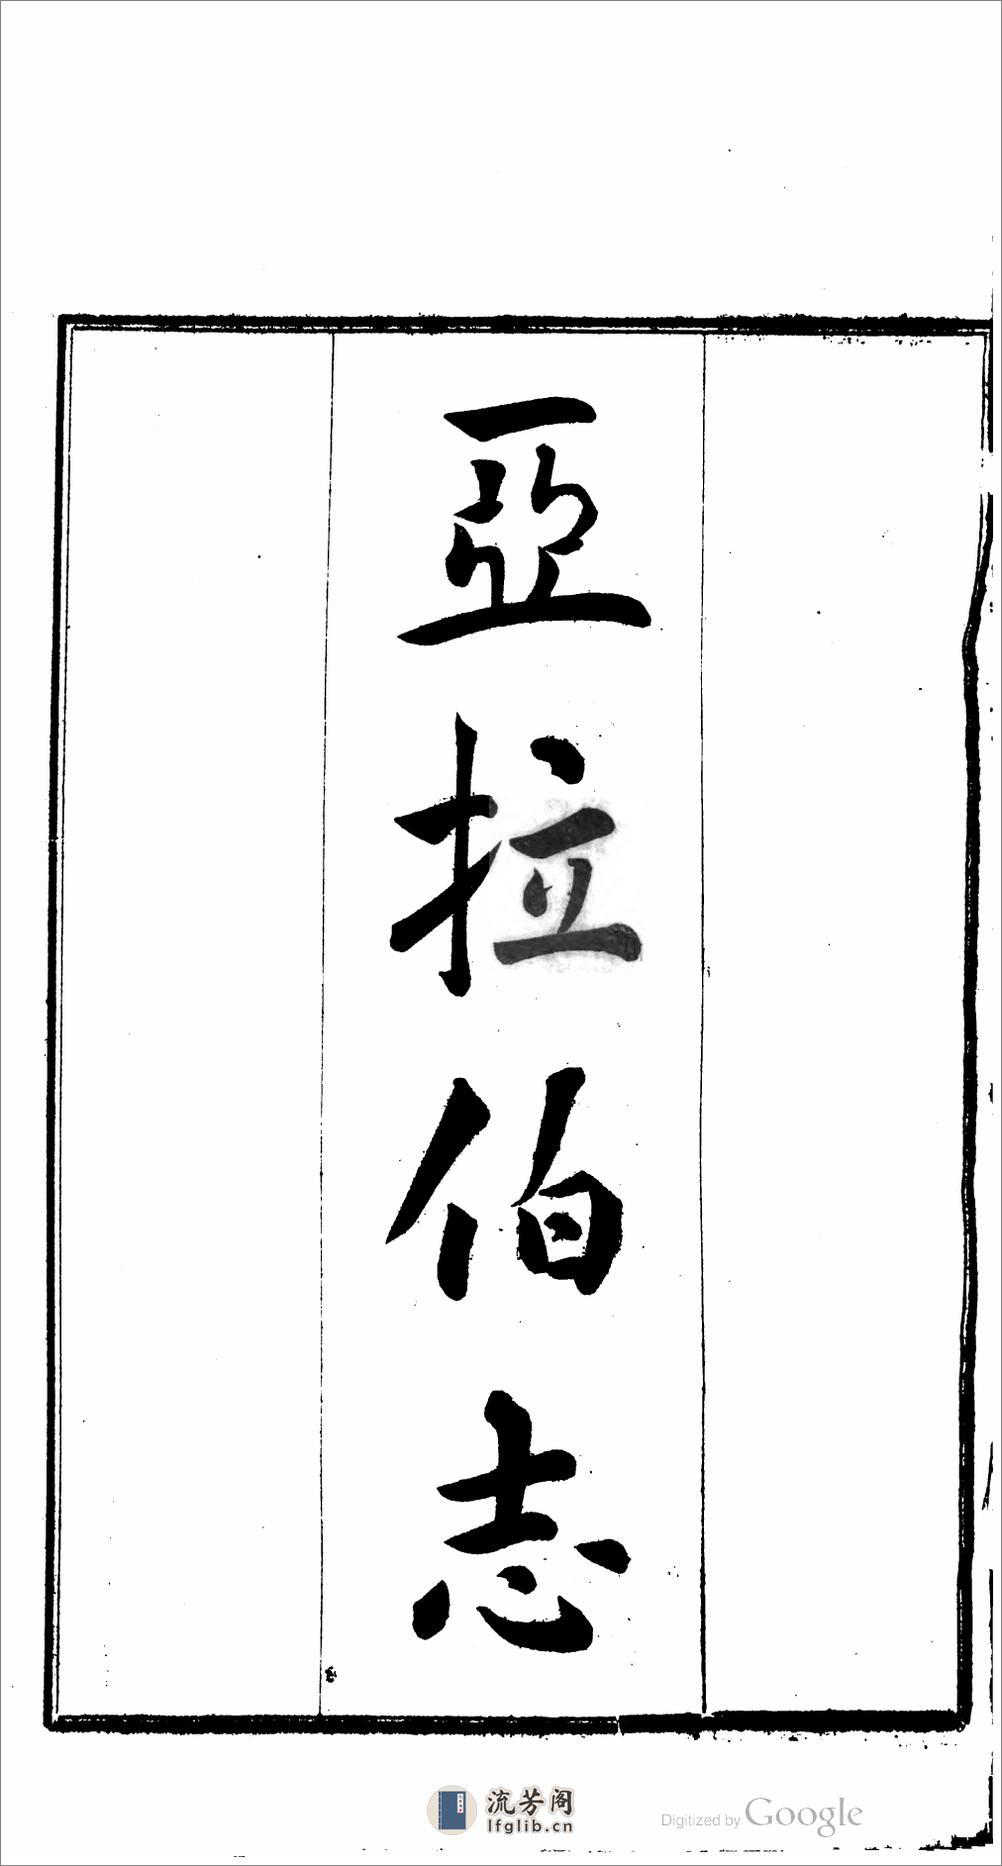 亞拉伯志
流芳阁
lfglib.cn
Digitized by Google